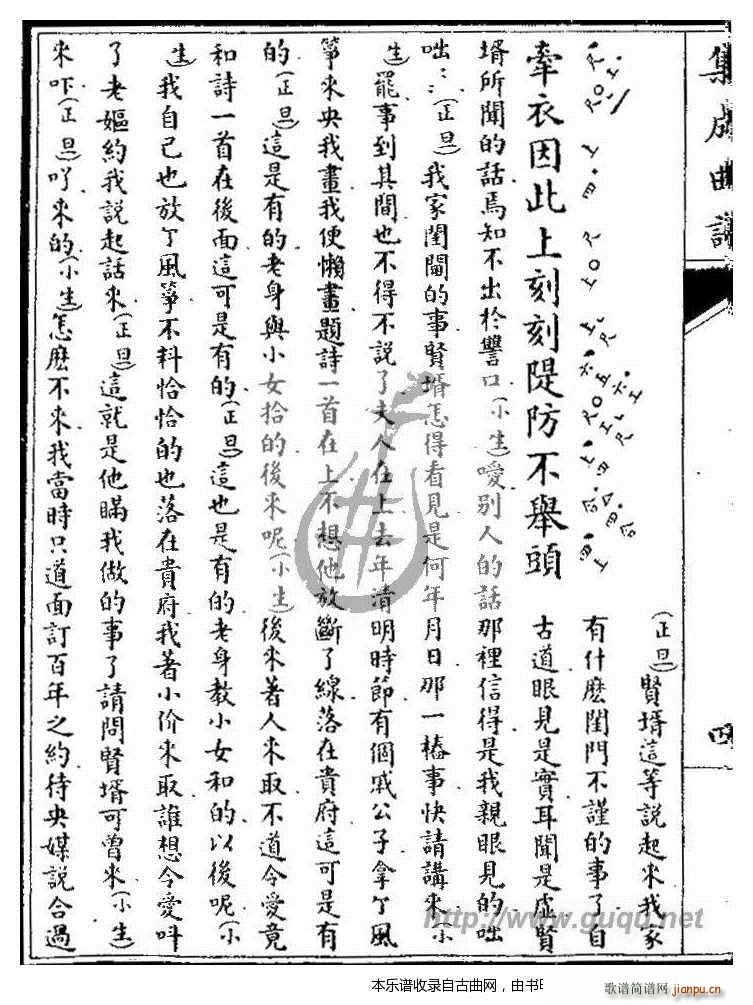 集成曲譜
四
牽衣因此上刻刻隄防不舉頭
(正旦)賢壻這等說起來我家
有什麽閨門不謹的事了自
古道眼見是實耳聞是虛賢
壻所聞的話焉知不出於讐口(小生)噯別人的話那裡信得是我親眼見的咄
咄(正旦)我家閨閫的事賢壻怎得看見是何年月日那一樁事快請講來(小
生)罷事到其間也不得不說了夫人在上去年清明時節有個戚公子拿了風
箏來央我畫我便懶畫題詩一首在上不想他放斷了線落在貴府這可是有
的(正旦)這是有的老身與小女拾的後來呢(小生)後來著人來取不道令愛竟
和詩一首在後面這可是有的(正旦)這也是有的老身教小女和的以後呢(小
生)我自己也放了風箏不料恰恰的也落在貴府我著小价來取誰想令愛呌
了老嫗約我說起話來(正旦)這就是他瞞我做的事了請問賢壻可曾來(小生)
來吓(正旦)吖來的(小生)怎麽不來我當時只道面訂百年之約待央媒說合過
http://www.guqu.net
本乐谱收录自古曲网，由书
歌谱简谱网
jianpu.cn